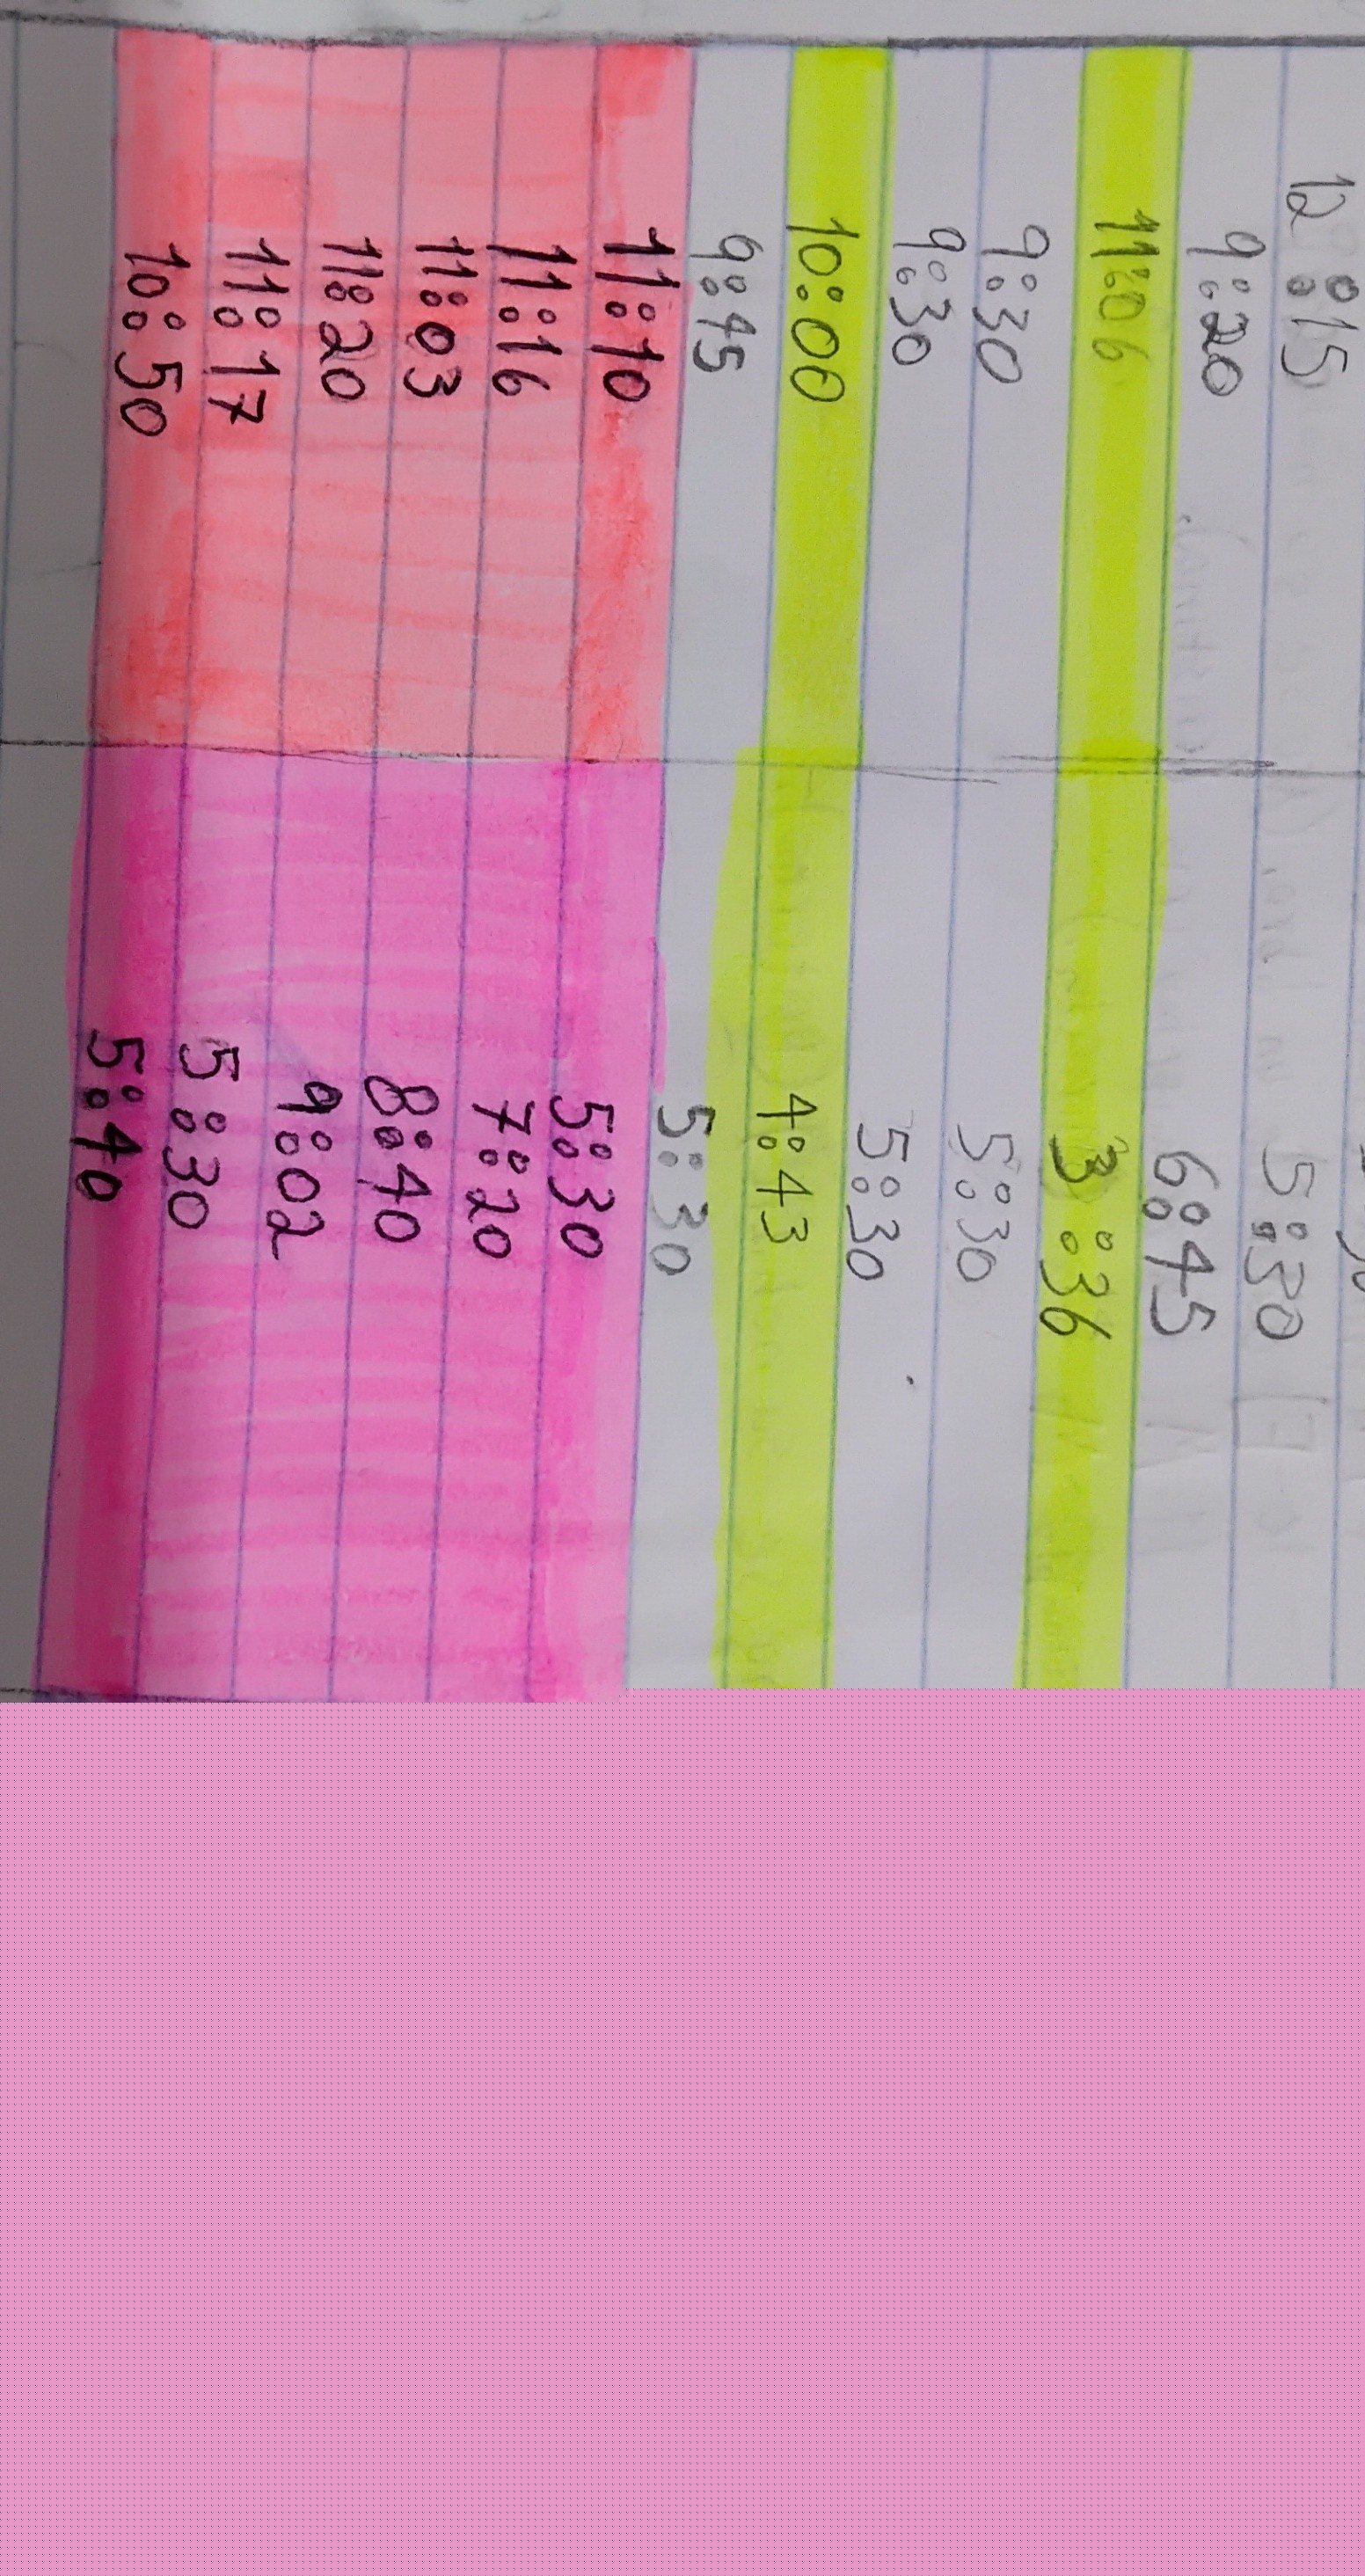 12:15 5:30
9:20 6:45
11:06 3:36
9:30 5:30
9:30 5:30
10:00 4:43
9:45 5:30
11:10 5:30
11:16 7:20
11:03 8:40
11:20 9:02
11:17 5:30
10:50 5:40